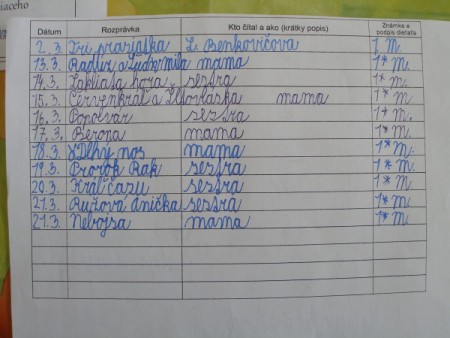 iaceho
Dátum Rozprávka Kto čítal a ako (krátky popis) Známka a podpis dieťaťa
2. 3. Tri prasiatka L. Benkovičova 1 M.
13. 3. Radúz a Ľudmila mama 1* M.
14. 3. Zakliata hora sestra 1* M.
15. 3. Červenkráľ a Žltovláska mama 1* M.
16. 3. Popolvár sestra 1* M.
17. 3. Berona mama 1* M.
18. 3. Dlhý nos mama 1* M.
19. 3. Prorok Rak sestra 1* M.
20. 3. Kráľ času sestra 1* M.
21. 3. Ružová Anička sestra 1* M.
21. 3. Nebojsa mama 1* M.